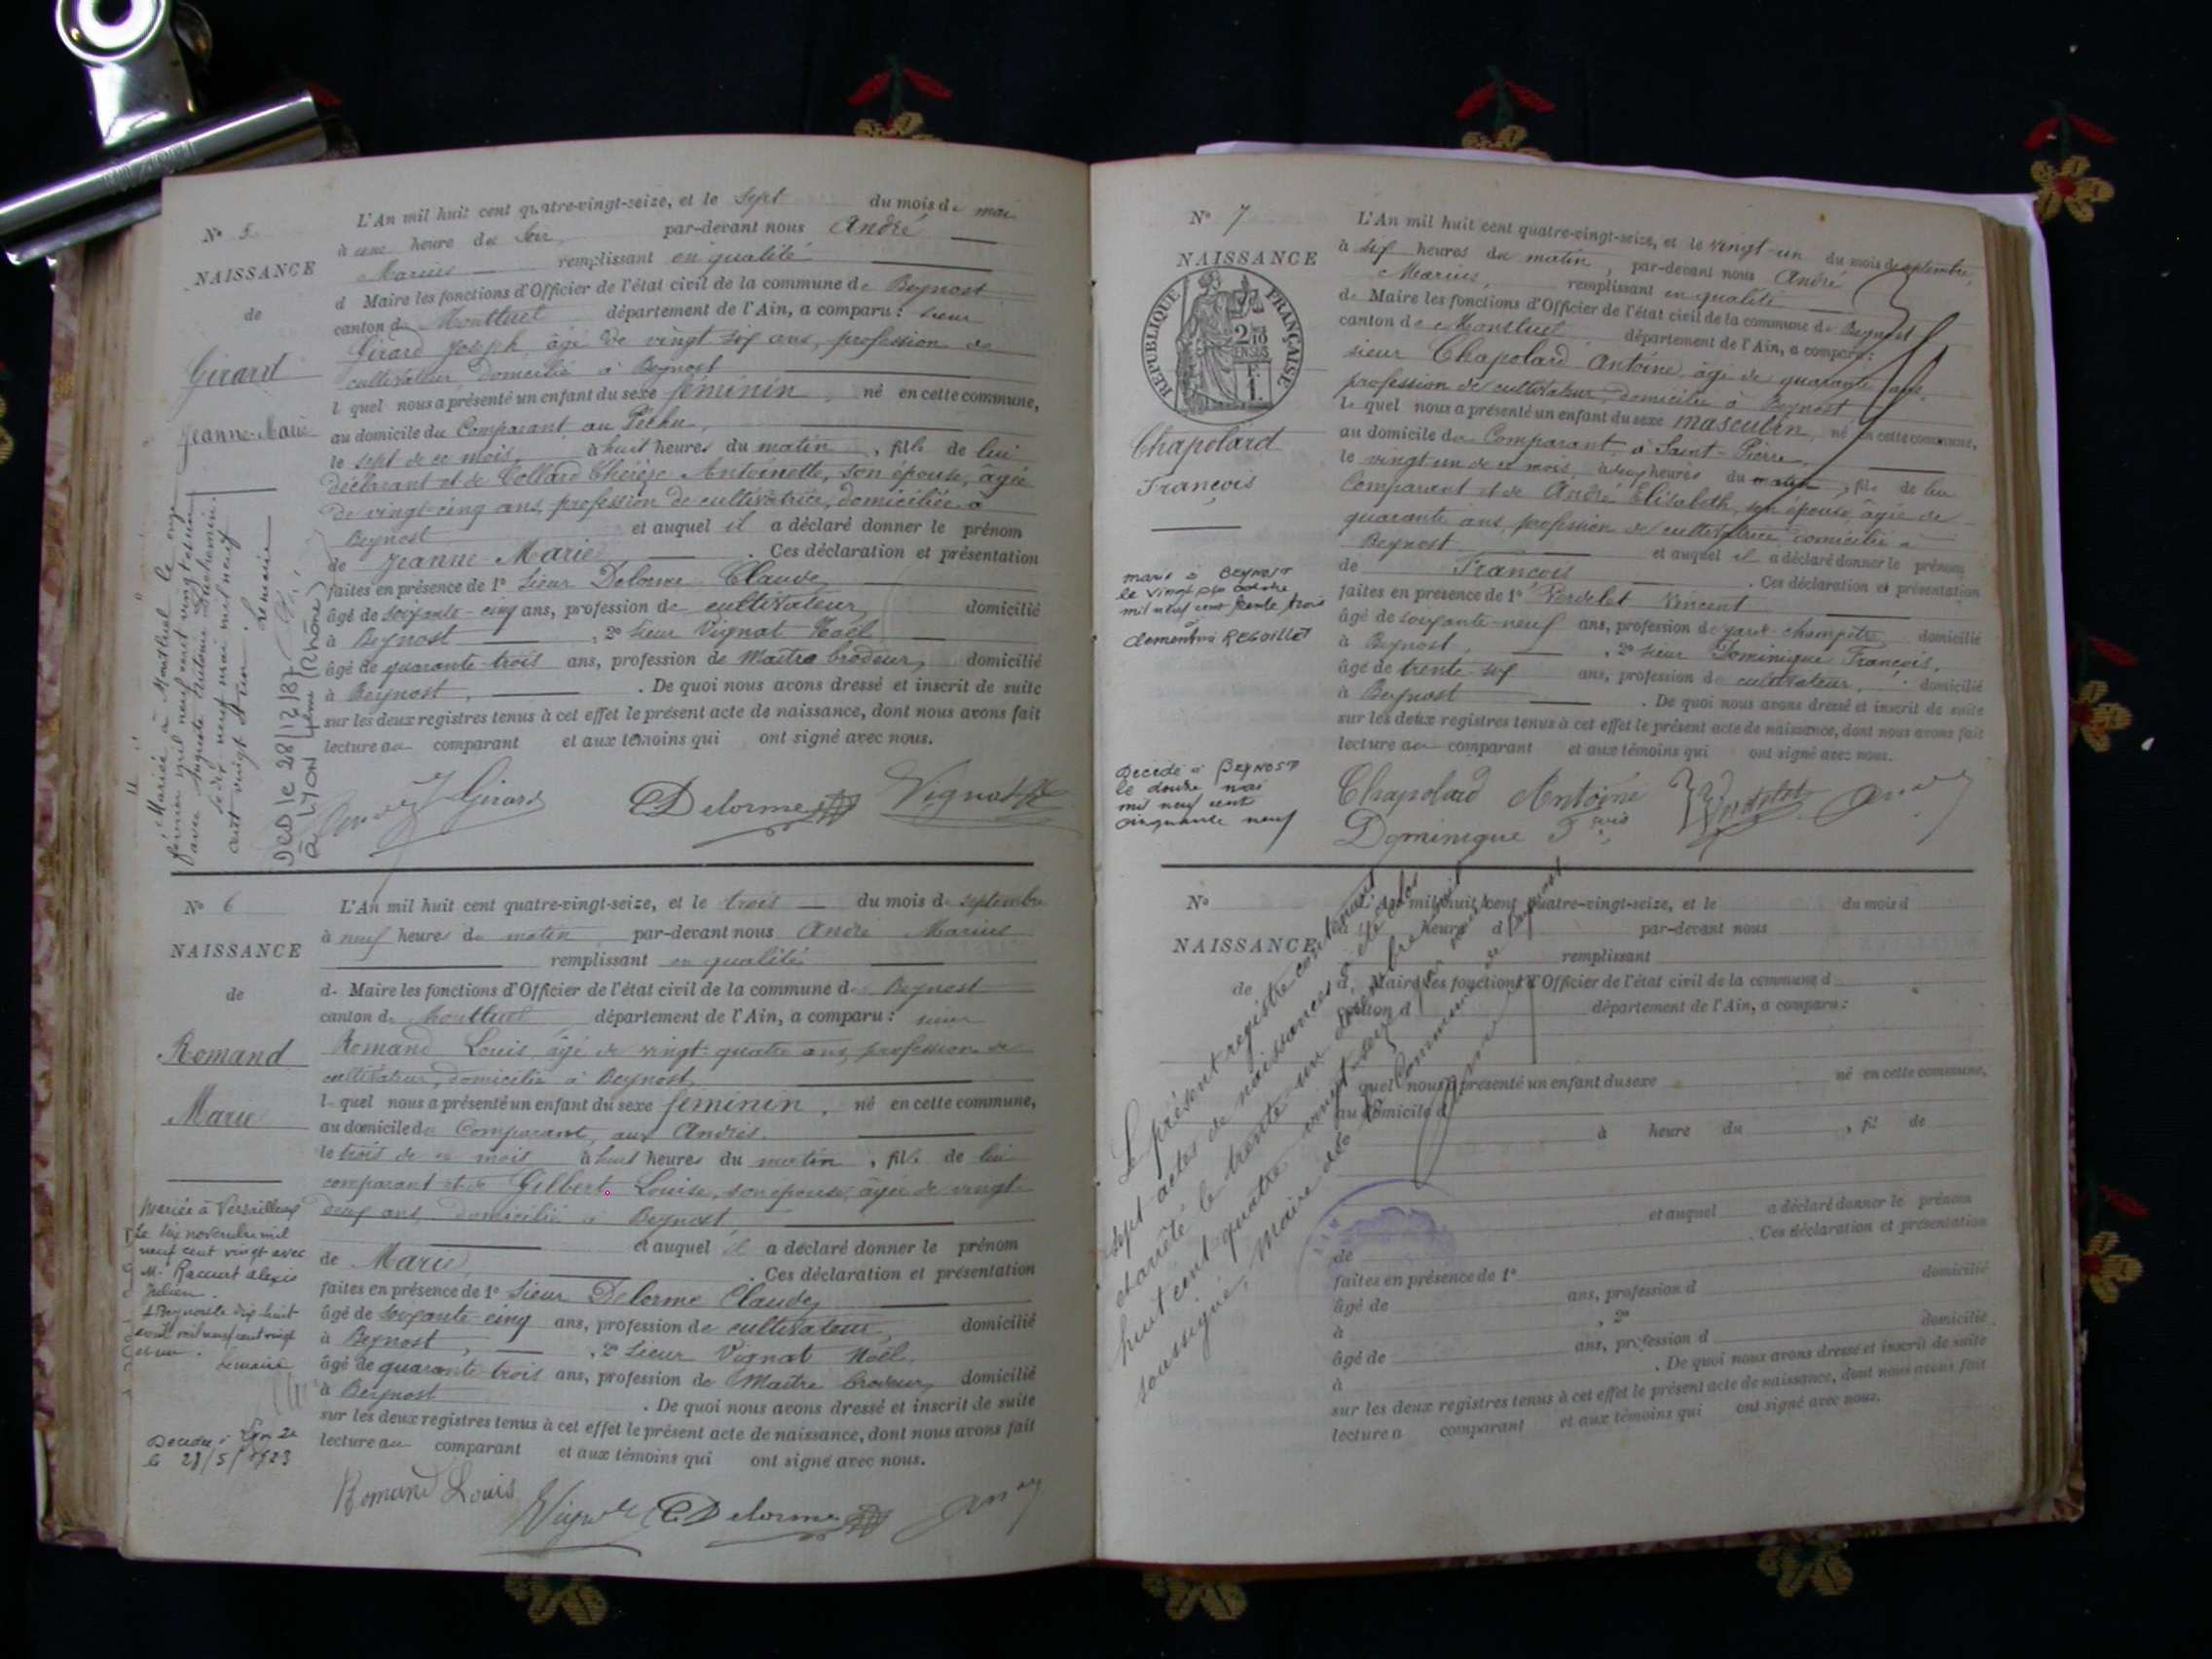 N° 5
NAISSANCE
de
Girard
Jeanne-Marie
L'An mil huit cent quatre-vingt-seize, et le sept du mois de mai
à une heure du soir par-devant nous André
Marius remplissant en qualité
d Maire les fonctions d'Officier de l'état civil de la commune de Beynost
canton de Montluel département de l'Ain, a comparu : sieur
Girard Joseph, âgé de vingt six ans, profession de
cultivateur, domicilié à Beynost
l quel nous a présenté un enfant du sexe féminin, né en cette commune,
au domicile du Comparant, au Péchu,
le sept de ce mois à huit heures du matin, fille de lui
déclarant et de Collard Thérèse Antoinette, son épouse, âgée
de vingt-cinq ans, profession de cultivatrice, domiciliée à
Beynost et auquel il a déclaré donner le prénom
de Jeanne-Marie. Ces déclaration et présentation
faites en présence de 1° Sieur Delorme Claude,
âgé de soixante-cinq ans, profession de cultivateur, domicilié
à Beynost, 2° Sieur Vignat Noël
âgé de quarante-trois ans, profession de Maître brodeur, domicilié
à Beynost, . De quoi nous avons dressé et inscrit de suite
sur les deux registres tenus à cet effet le présent acte de naissance, dont nous avons fait
lecture au comparant et aux témoins qui ont signé avec nous.
Mariée à Montluel le onze
février mil neuf cent vingt et un
avec Auguste Antoine Duchemin.
le dix neuf mai mil neuf
cent vingt et un. Le maire
DCD le 28/12/87
à LYON 4ème (Rhône)
J Girard Delorme Vignat
N° 6
NAISSANCE
de
Romand
Marie
L'An mil huit cent quatre-vingt-seize, et le trois du mois de septembre
à neuf heures du matin par-devant nous André Marius
remplissant en qualité
de Maire les fonctions d'Officier de l'état civil de la commune de Beynost
canton de Montluel département de l'Ain, a comparu : sieur
Romand Louis, âgé de vingt-quatre ans, profession de
cultivateur, domicilié à Beynost,
le quel nous a présenté un enfant du sexe féminin, né en cette commune,
au domicile du Comparant, aux Andrés.
le trois de ce mois à huit heures du matin, fille de lui
comparant et de Gilbert Louise, son épouse, âgée de vingt-
deux ans, domicilié à Beynost,
et auquel il a déclaré donner le prénom
de Marie, . Ces déclaration et présentation
faites en présence de 1° Sieur Delorme Claude,
âgé de soixante cinq ans, profession de cultivateur, domicilié
à Beynost, , 2° Sieur Vignat Noël,
âgé de quarante-trois ans, profession de Maître brodeur, domicilié
à Beynost . De quoi nous avons dressé et inscrit de suite
sur les deux registres tenus à cet effet le présent acte de naissance, dont nous avons fait
lecture au comparant et aux témoins qui ont signé avec nous.
Mariée à Versailleux
le six novembre mil
neuf cent vingt avec
M. Racurt Alexis
Julien.
à Beynost le dix-huit
août mil neuf cent vingt
et un.
Le maire
Décédée à Lyon 2e
le 28/5/1923
Romand Louis Vignat Delorme
N° 7
NAISSANCE
RÉPUBLIQUE FRANÇAISE
Chapolard
François
L'An mil huit cent quatre-vingt-seize, et le vingt-un du mois de septembre,
à six heures du matin, par-devant nous André
Marius, remplissant en qualité
de Maire les fonctions d'Officier de l'état civil de la commune de Beynost
canton de Montluel département de l'Ain, a comparu :
sieur Chapolard Antoine, âgé de quarante ans,
profession de cultivateur, domicilié à Beynost
le quel nous a présenté un enfant du sexe masculin, né en cette commune,
au domicile du Comparant, à Saint-Pierre,
le vingt un de ce mois, à deux heures du matin, fils de lui
Comparant et de André Elisabeth, son épouse, âgée de
quarante ans, profession de cultivatrice domicilié à
Beynost et auquel il a déclaré donner le prénom
de François. Ces déclaration et présentation
faites en présence de 1° Verdelet Vincent
âgé de soixante-neuf ans, profession de garde-champêtre, domicilié
à Beynost, , 2° Sieur Dominique François,
âgé de trente six ans, profession de cultivateur, domicilié
à Beynost . De quoi nous avons dressé et inscrit de suite
sur les deux registres tenus à cet effet le présent acte de naissance, dont nous avons fait
lecture au comparant et aux témoins qui ont signé avec nous.
marié à BEYNOST
le vingt octobre
mil neuf cent trente trois
à
Clementine REGOILLET
Décédé à BEYNOST
le douze mai
mil neuf cent
cinquante neuf
Chapolard Antoine
Dominique Fçois
N°
NAISSANCE
de
L'An mil huit cent quatre-vingt-seize, et le du mois d
à heure d par-devant nous
remplissant
d Maire les fonctions d'Officier de l'état civil de la commune d
canton d département de l'Ain, a comparu :
quel nous a présenté un enfant du sexe né en cette commune,
au domicile d
à heure du , fil de
et auquel a déclaré donner le prénom
de . Ces déclaration et présentation
faites en présence de 1°
âgé de ans, profession d domicilié
à , 2°
âgé de ans, profession d domicilié
à . De quoi nous avons dressé et inscrit de suite
sur les deux registres tenus à cet effet le présent acte de naissance, dont nous avons fait
lecture a comparant et aux témoins qui ont signé avec nous.
Le présent registre contenant
sept actes de naissances a été clos
et arrêté le trente un décembre mil
huit cent quatre vingt-seize par nous
soussigné, Maire de la Commune de Beynost